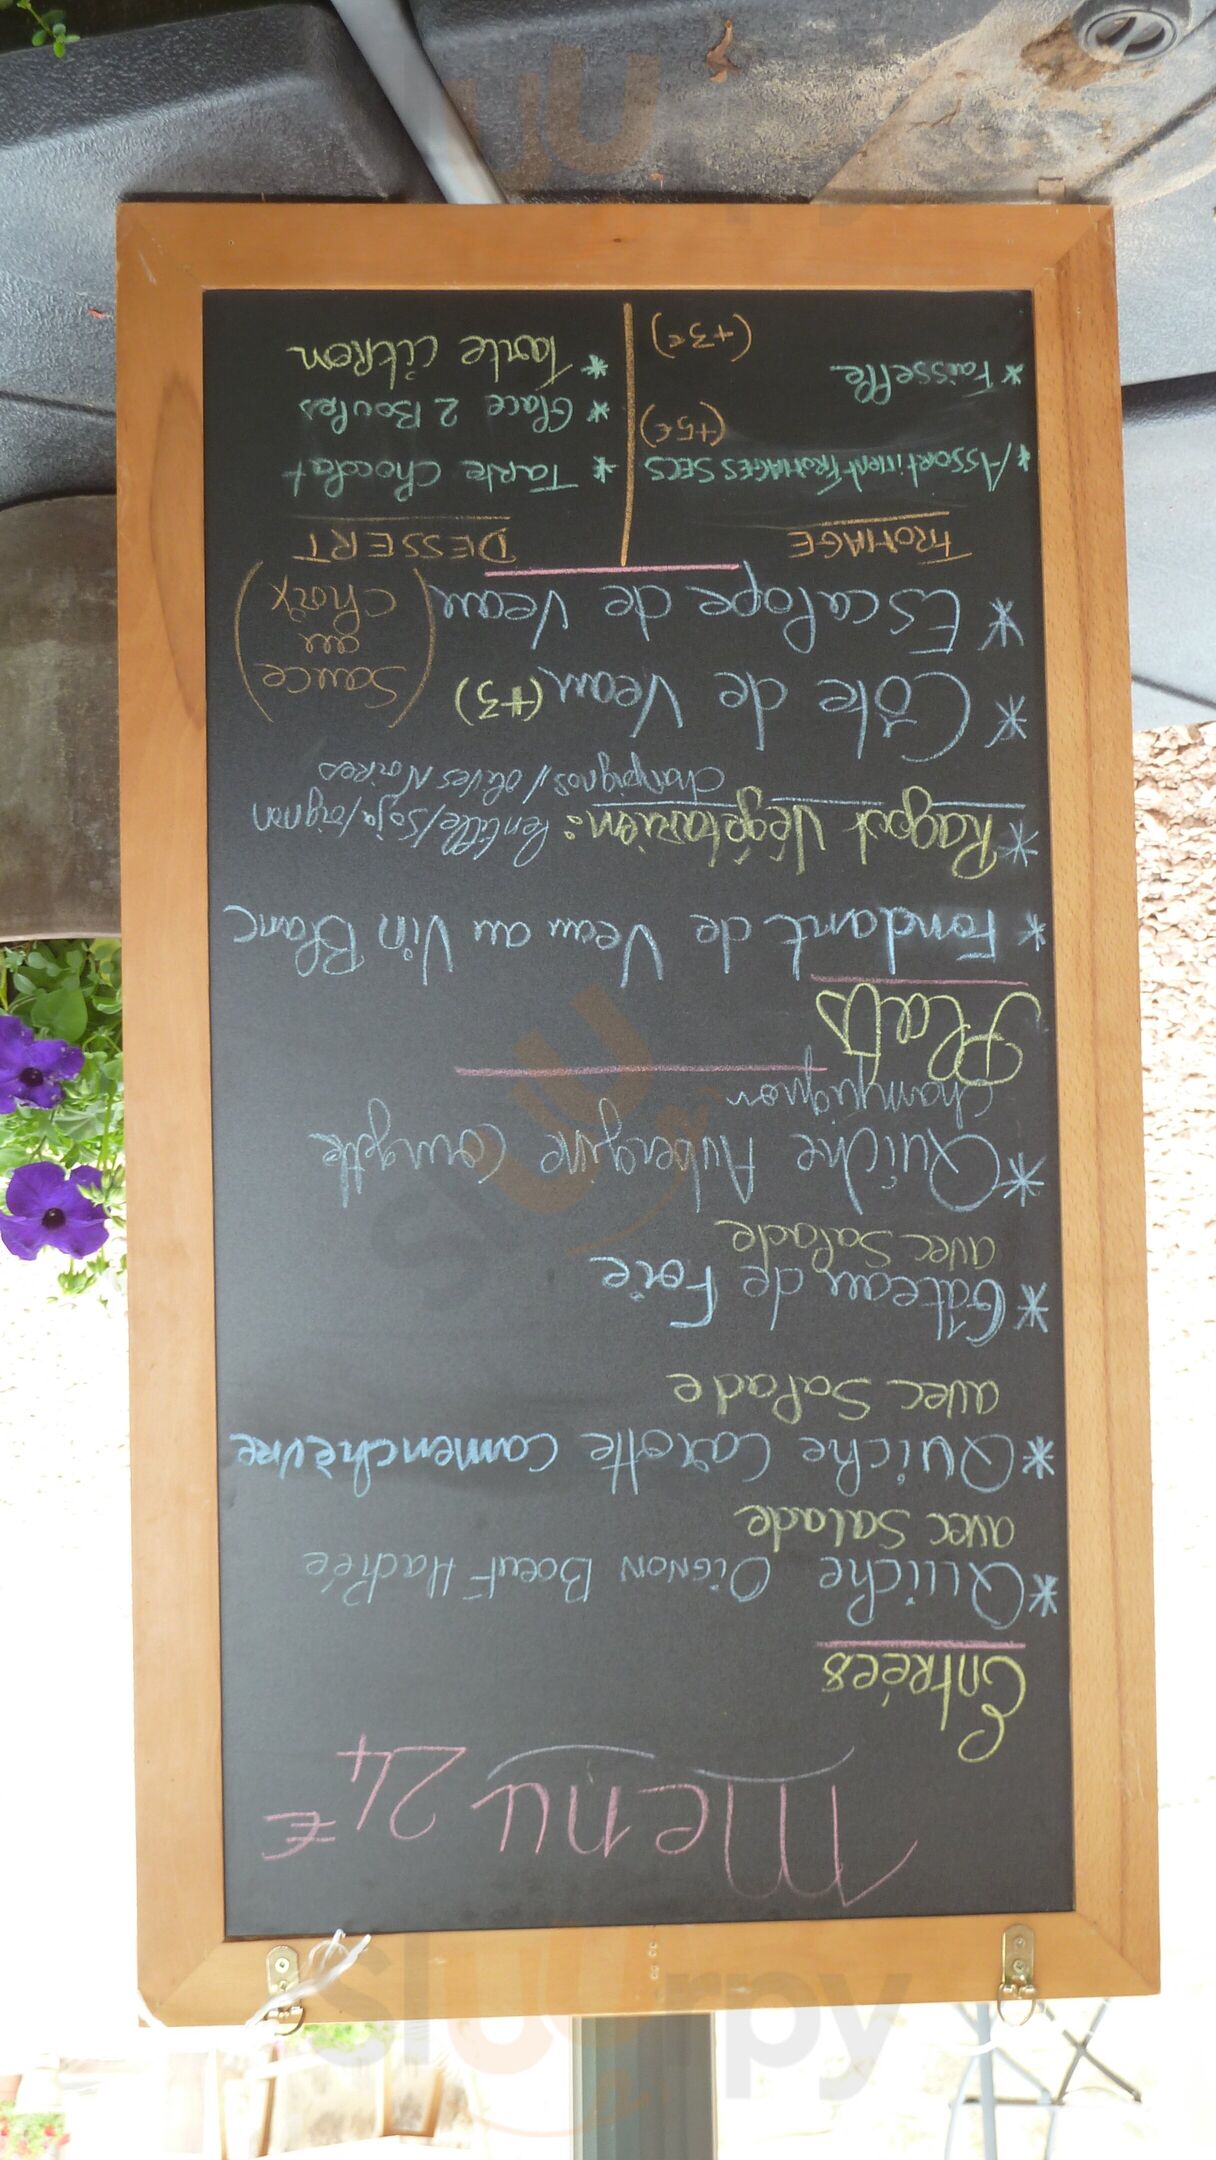 Menu 24€
Entrées
* Quiche Oignon Boeuf Hachée
avec Salade
* Quiche Carotte camenchèvre
avec Salade
* Gâteau de Foie
avec Salade
* Quiche Aubergine Courgette
champignon
Plats
* Fondant de Veau au Vin Blanc
* Ragout Végétarien: lentille/soja/oignon
champignos/olives Noires
* Côte de Veau (+3)
* Escalope de Veau
(Sauce
au
choix)
FROMAGE
* Assortiment FROMAGES SECS
(+5€)
* Faisselle
(+3€)
DESSERT
* Tarte Chocolat
* Glace 2 Boules
* Tarte citron
sluurpy